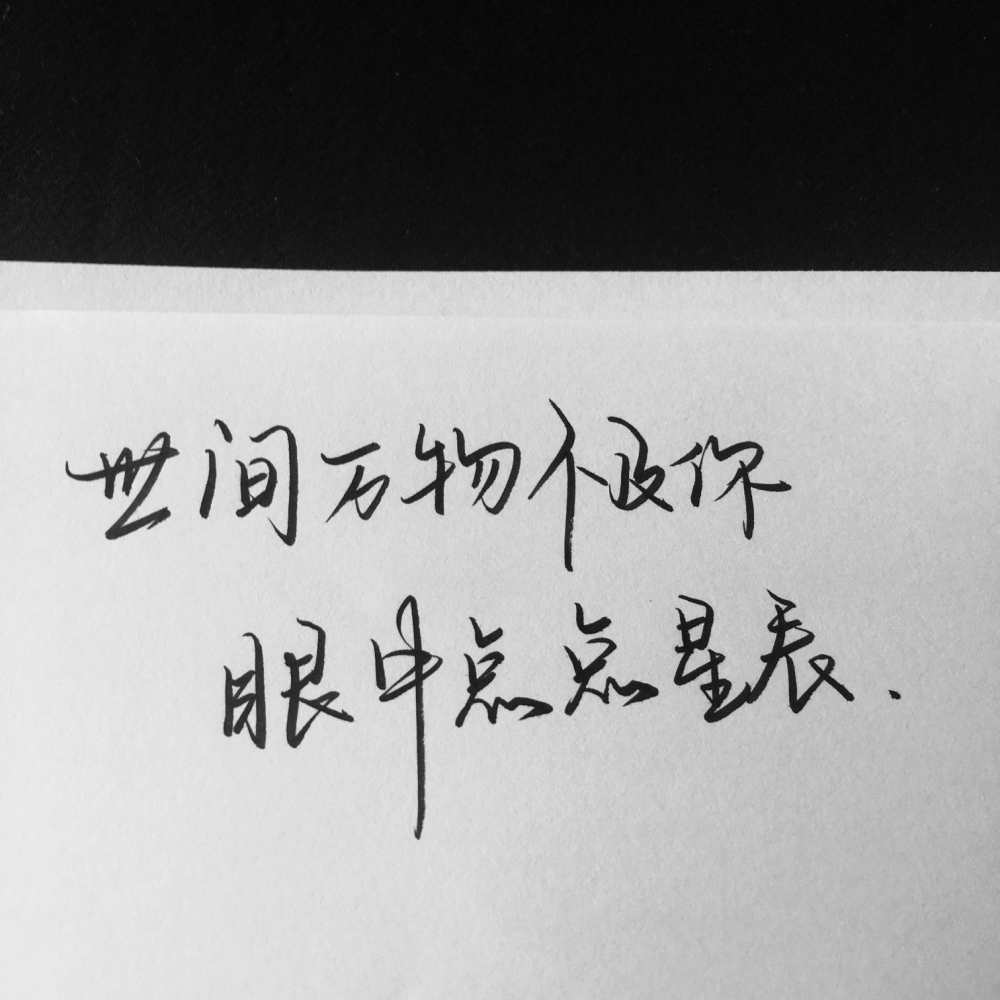 世间万物不及你
眼中点点星辰.